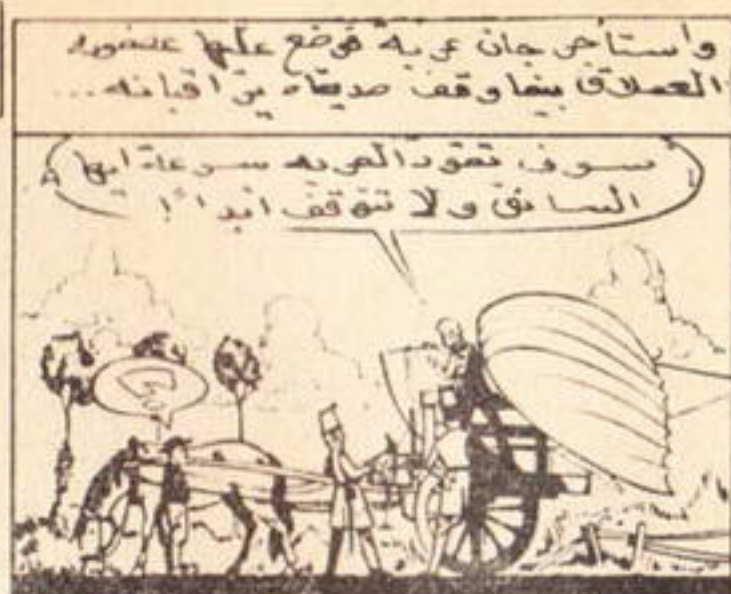 واستأجر جان عربة فوضع عليها عصفوره
العملاق بينما وقف صديقاه يراقبانه...
سوف تقود العربه بسرعة أيها
السائق ولا تتوقف أبداً!